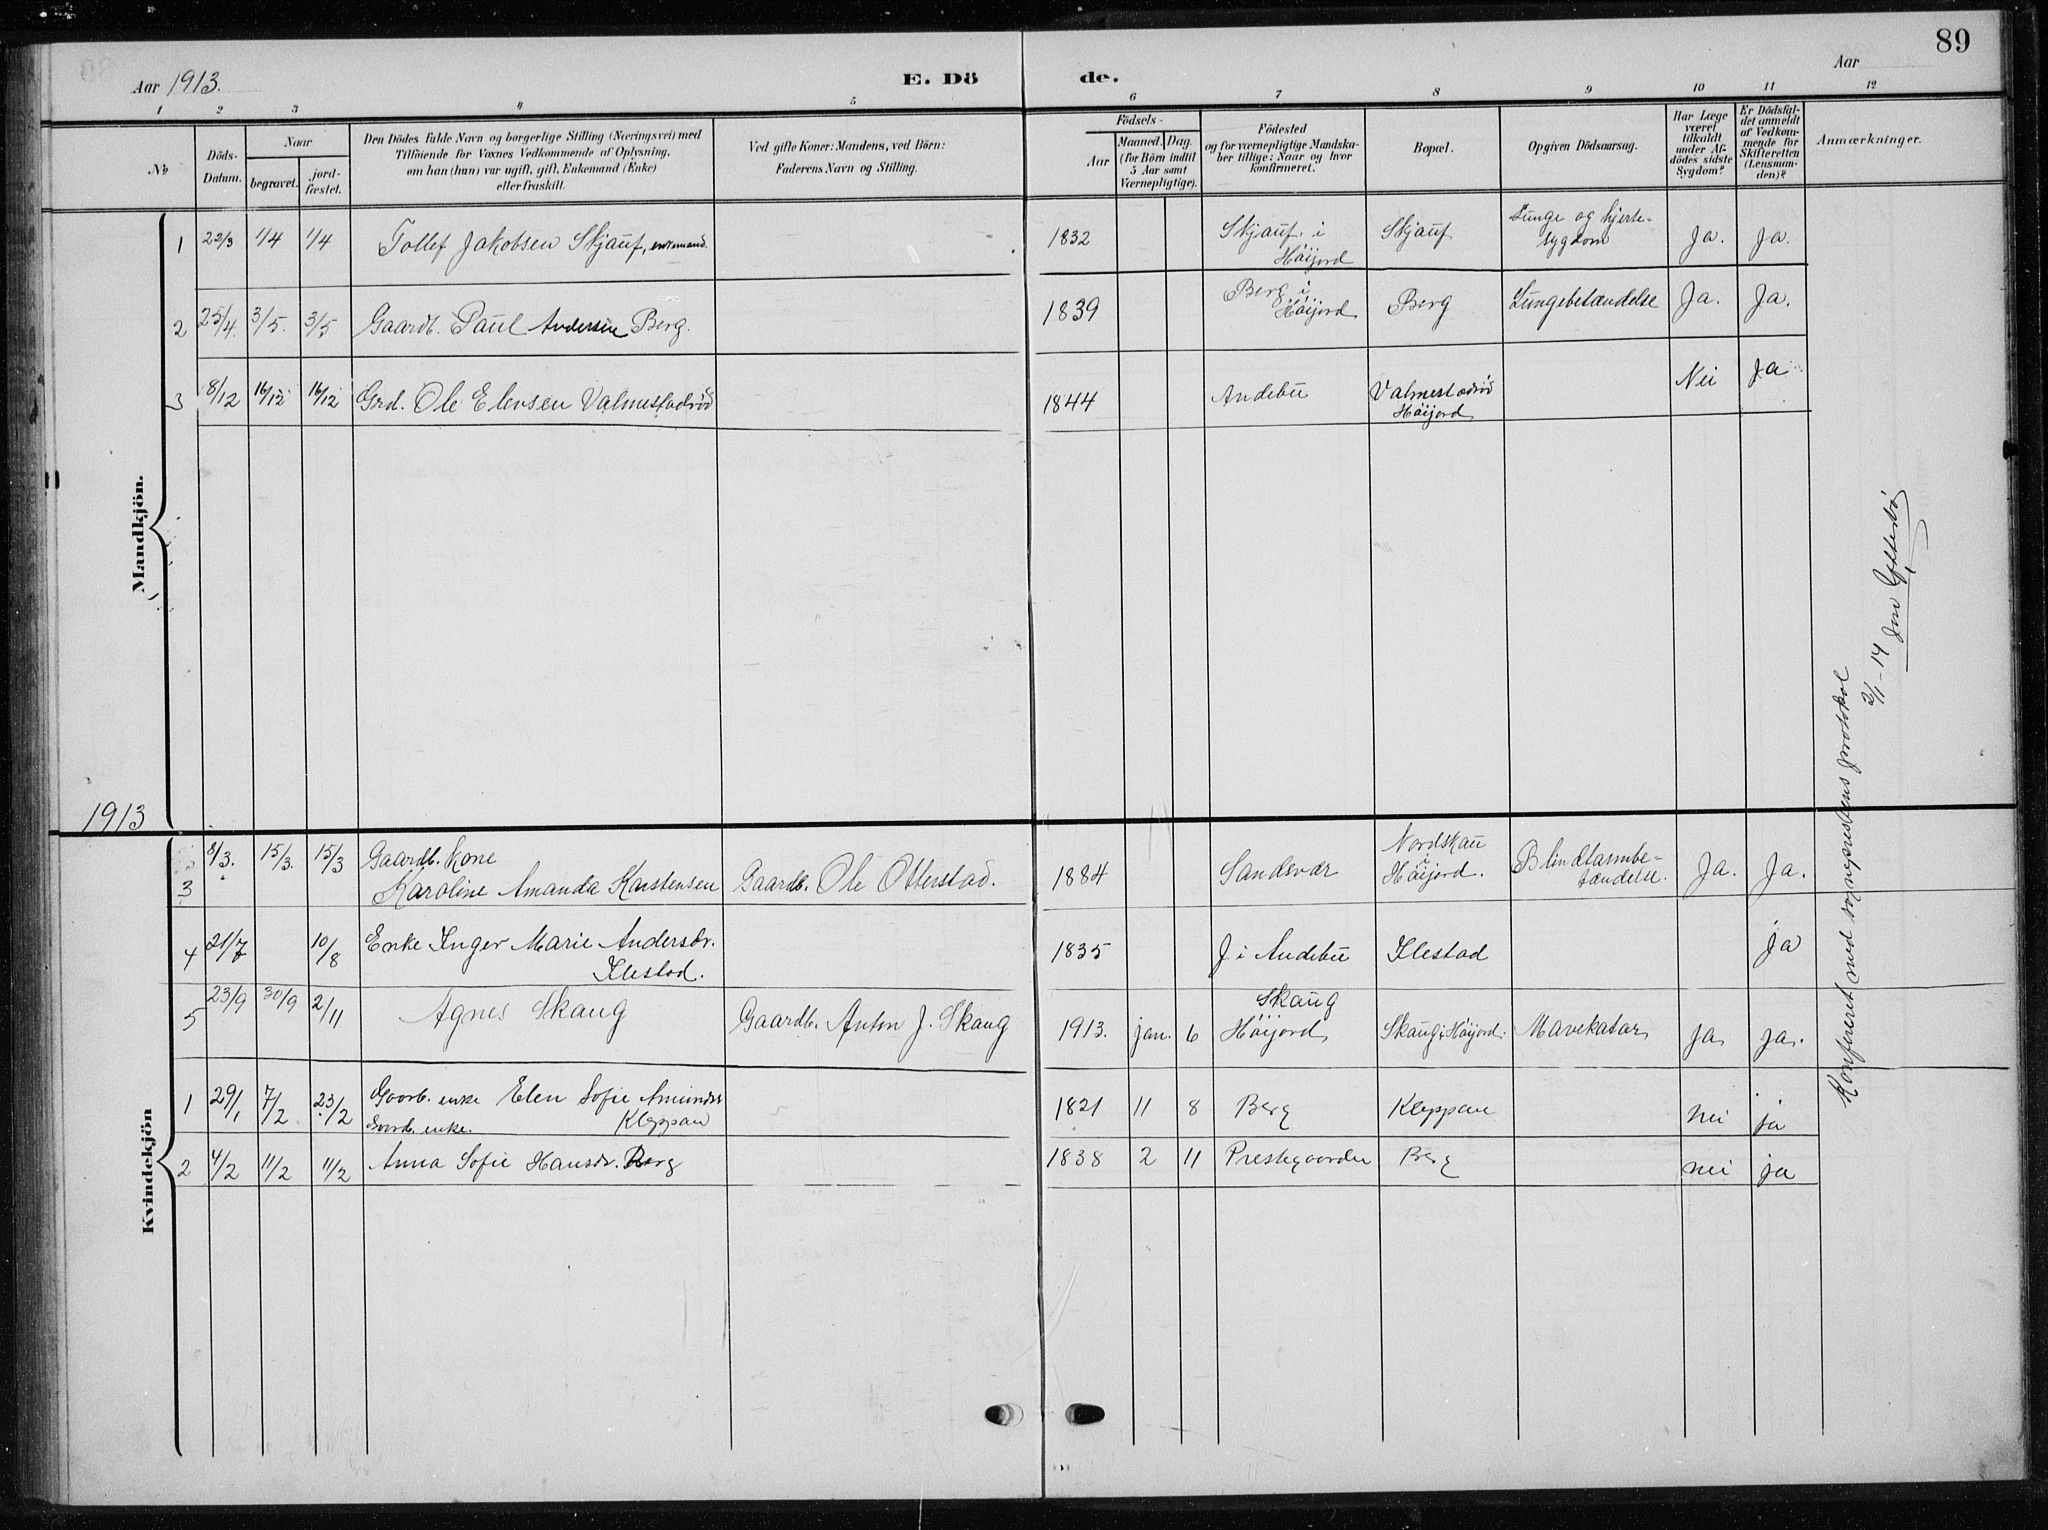 89
Aar 1913.
E. Dö de.
Aar
1 2 3 4 5 6 7 8 9 10 11 12
No
Döds-Datum.
Naar
begravet.
jord-fæstet.
Den Dödes fulde Navn og borgerlige Stilling (Næringsvei) med
Tilföiende for Voxnes Vedkommende af Oplysning,
om han (hun) var ugift, gift, Enkemand (Enke)
eller fraskilt.
Ved gifte Koner: Mandens, ved Börn:
Faderens Navn og Stilling.
Födsels-
Aar
Maaned. Dag.
(for Börn indtil
5 Aar samt
Værnepligtige).
Födested
og for værnepligtige Mandska-
ber tillige: Naar og hvor
konfirmeret.
Bopæl.
Opgiven Dödsaarsag.
Har Læge
været
tilkaldt
under Af-
dödes sidste
Sygdom?
Er Dödsfal-
det anmeldt
af Vedkom-
mende for
Skifteretten
(Lensman-
den)?
Anmærkninger.
Mandkjön.
1 23/3 1/4 1/4 Tollef Jakobsen Skjauf, enkemand. 1832 Skjauf i Höijord Skjauf Lunge og hjerte-sygdom Ja. Ja.
2 25/4. 3/5. 3/5 Gaardb. Paul Andersen Berg. 1839 Berg i Höijord Berg Lungebetændelse Ja. Ja.
3 8/12 16/12 16/12 Grd. Ole Elensen Valmestadröd 1844 Andebu Valmestadröd Höijord Nei Ja
1913
Kvindekjön
3 8/3. 15/3. 15/3 Gaardb. kone
Karoline Amanda Karstensen Gaardb. Ole Otterstad. 1884 Sandsvær Nordskau i Höijord. Blindtarmbe-tændelse. Ja. Ja.
4 21/7 10/8 Enke Inger Marie Andersdr.
Ilestad. 1835 J i Andebu Ilestad ja
5 23/9 30/9 2/11 Agnes Skaug Gaardb. Anton J. Skaug 1913. jan. 6 Skaug Höijord Skaug i Höijord. Mavekatar Ja Ja.
1 29/1 7/2 23/2 Gaarb. enke Elen Sofie Amundsd.
Kleppan 1821 11 8 Berg Kleppan nei ja
Gaardb. enke.
2 4/2 11/2 11/2 Anna Sofie Hansdr. Berg 1838 2 11 Prestegaarden Berg nei ja
Konfereret med sogneprestens protokol
2/1-14